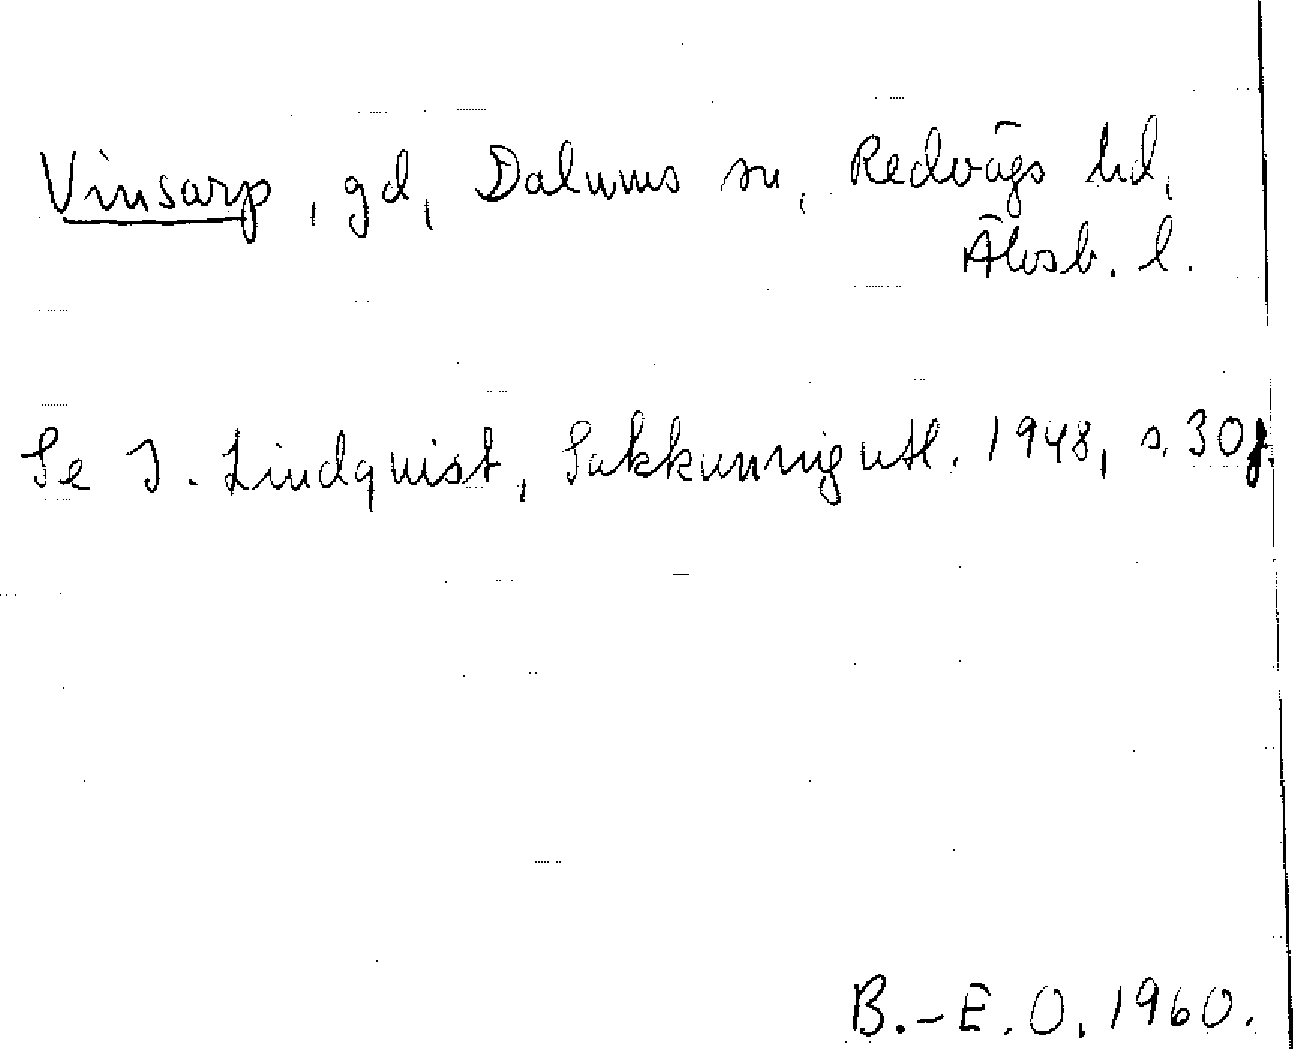 Vinsarp, gd, Dalums sn, Redvägs hd,
Älvsb. l.
Se I. Lindquist, Sakkunnigutl. 1948, s. 30 f.
B.-E. O. 1960.